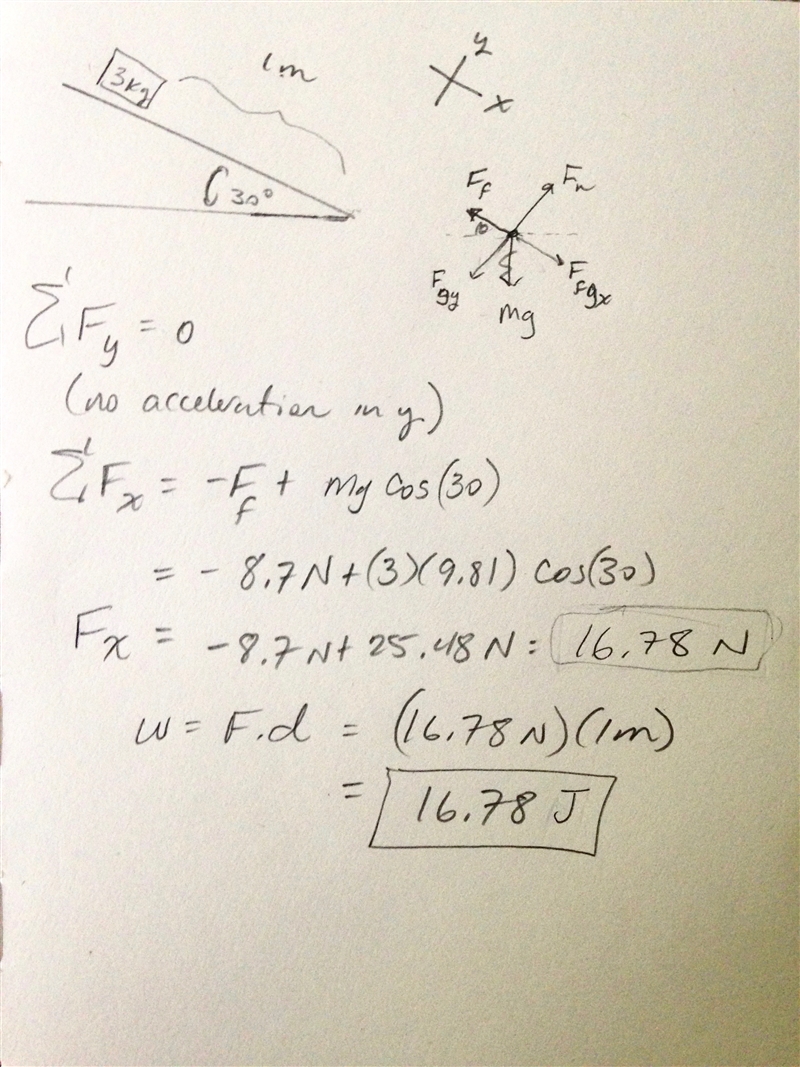 1m
3kg
30°
y
x
Ff
Fn
Fgy
mg
Fgx
ΣFy = 0
(no acceleration in y)
ΣFx = -Ff + mg cos(30)
= - 8.7N + (3)(9.81) cos(30)
Fx = -8.7N + 25.48N = 16.78 N
w = F.d = (16.78N)(1m)
= 16.78 J